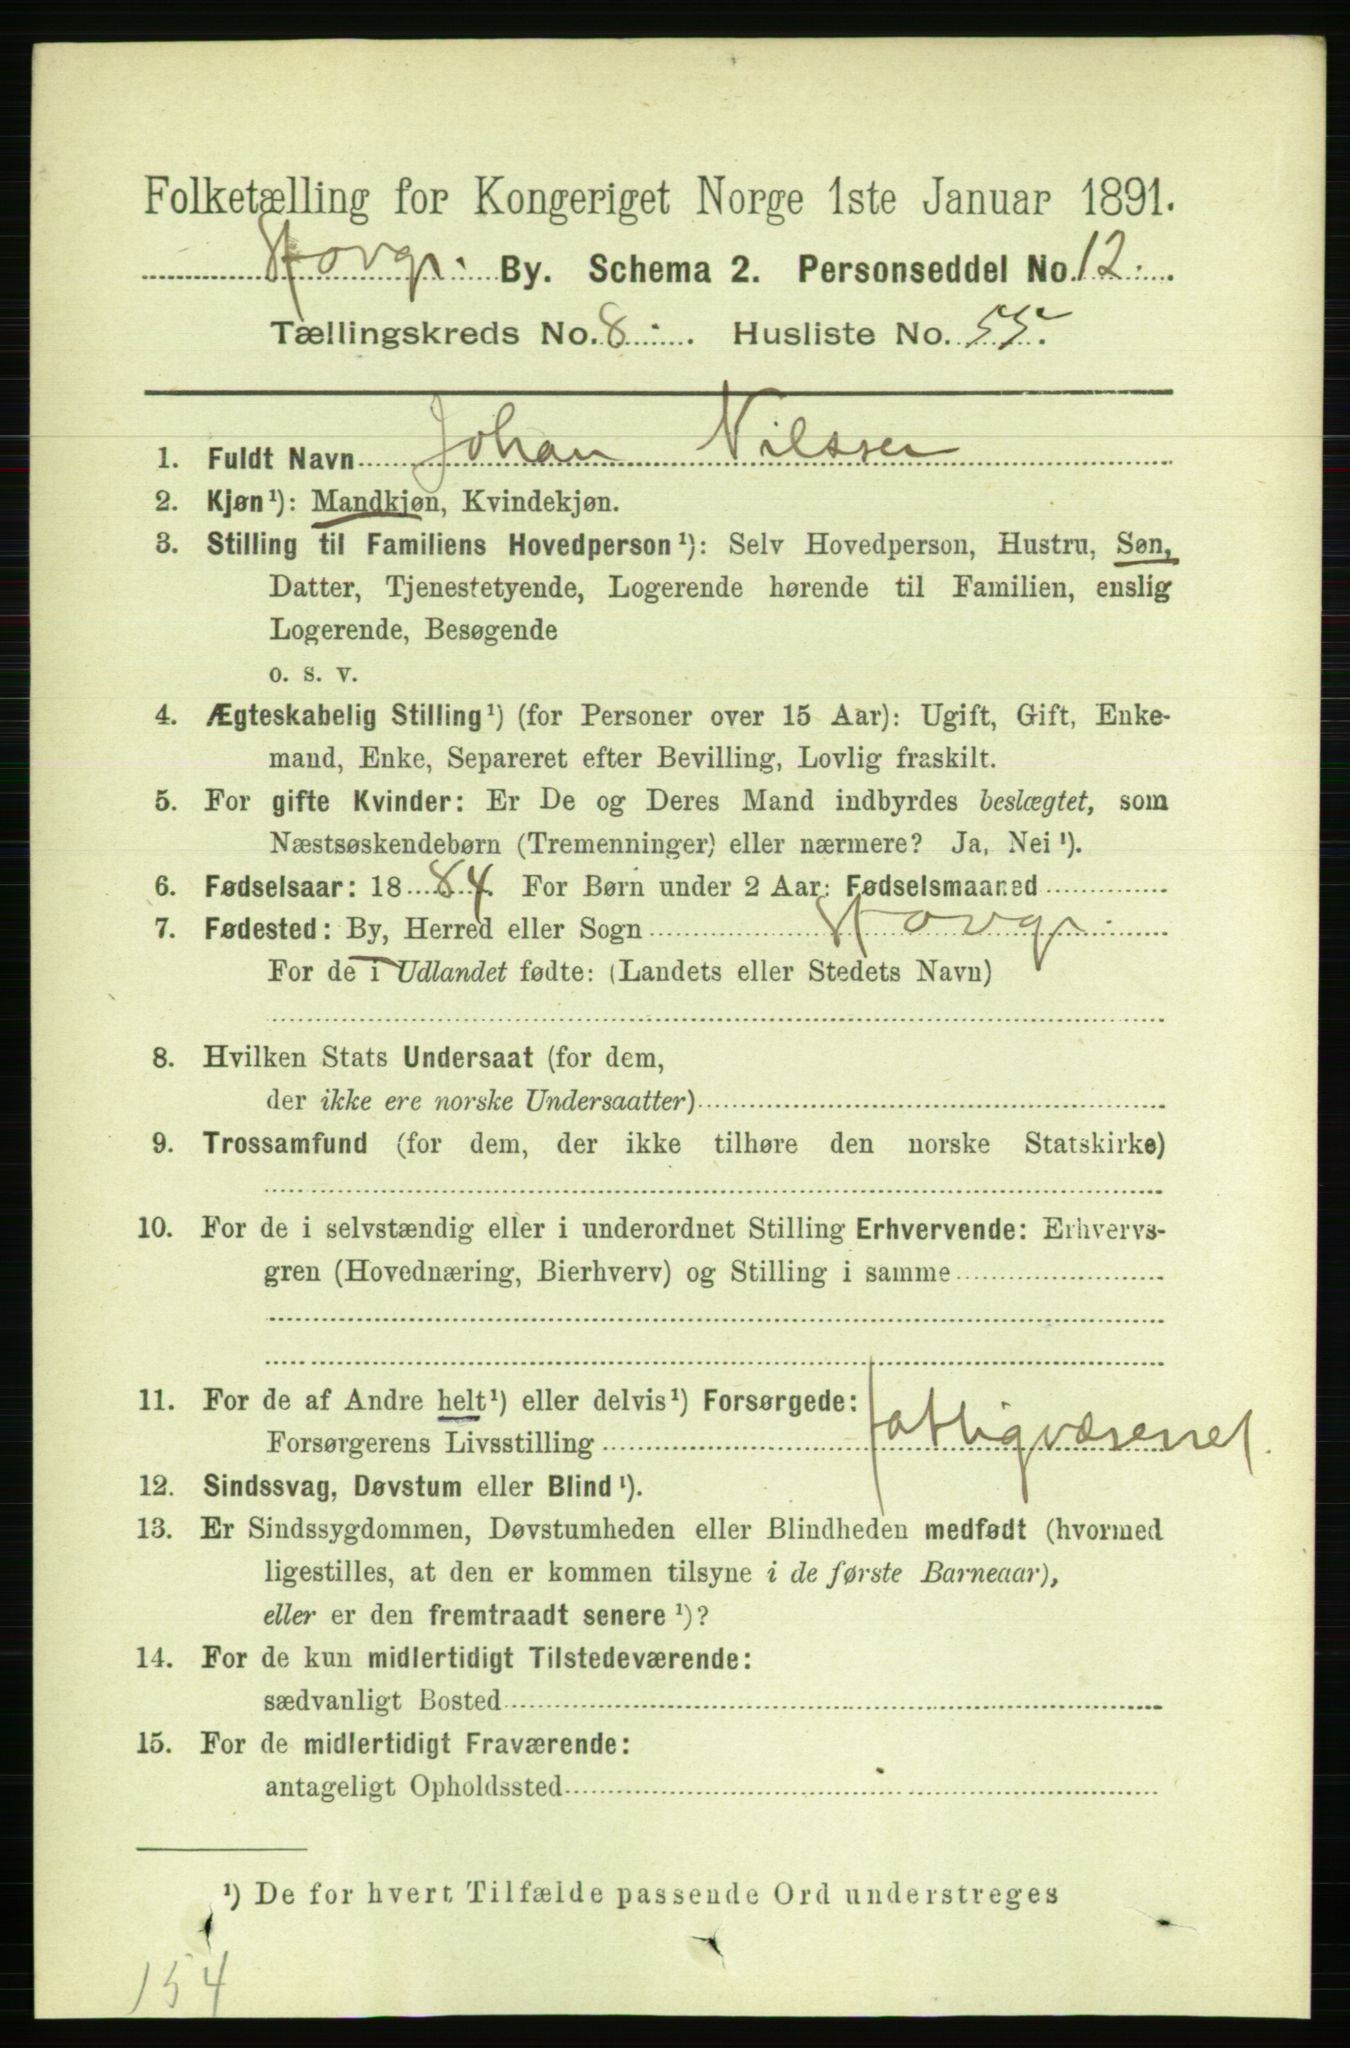 Folketælling for Kongeriget Norge 1ste Januar 1891.
Stavgr. By. Schema 2. Personseddel No. 12.
Tællingskreds No. 8. Husliste No. 55.
1. Fuldt Navn Johan Nilssen
2. Kjøn¹): Mandkjøn, Kvindekjøn.
3. Stilling til Familiens Hovedperson¹): Selv Hovedperson, Hustru, Søn,
Datter, Tjenestetyende, Logerende hørende til Familien, enslig
Logerende, Besøgende
o. s. v.
4. Ægteskabelig Stilling¹) (for Personer over 15 Aar): Ugift, Gift, Enke-
mand, Enke, Separeret efter Bevilling, Lovlig fraskilt.
5. For gifte Kvinder: Er De og Deres Mand indbyrdes beslægtet, som
Næstsøskendebørn (Tremenninger) eller nærmere? Ja, Nei¹).
6. Fødselsaar: 1884 For Børn under 2 Aar: Fødselsmaaned
7. Fødested: By, Herred eller Sogn Stavgr.
For de i Udlandet fødte: (Landets eller Stedets Navn)
8. Hvilken Stats Undersaat (for dem,
der ikke ere norske Undersaatter)
9. Trossamfund (for dem, der ikke tilhøre den norske Statskirke)
10. For de i selvstændig eller i underordnet Stilling Erhvervende: Erhvervs-
gren (Hovednæring, Bierhverv) og Stilling i samme
11. For de af Andre helt¹) eller delvis¹) Forsørgede:
Forsørgerens Livsstilling fattigvæsenet.
12. Sindssvag, Døvstum eller Blind¹).
13. Er Sindssygdommen, Døvstumheden eller Blindheden medfødt (hvormed
ligestilles, at den er kommen tilsyne i de første Barneaar),
eller er den fremtraadt senere¹)?
14. For de kun midlertidigt Tilstedeværende:
sædvanligt Bosted
15. For de midlertidigt Fraværende:
antageligt Opholdssted
¹) De for hvert Tilfælde passende Ord understreges
154